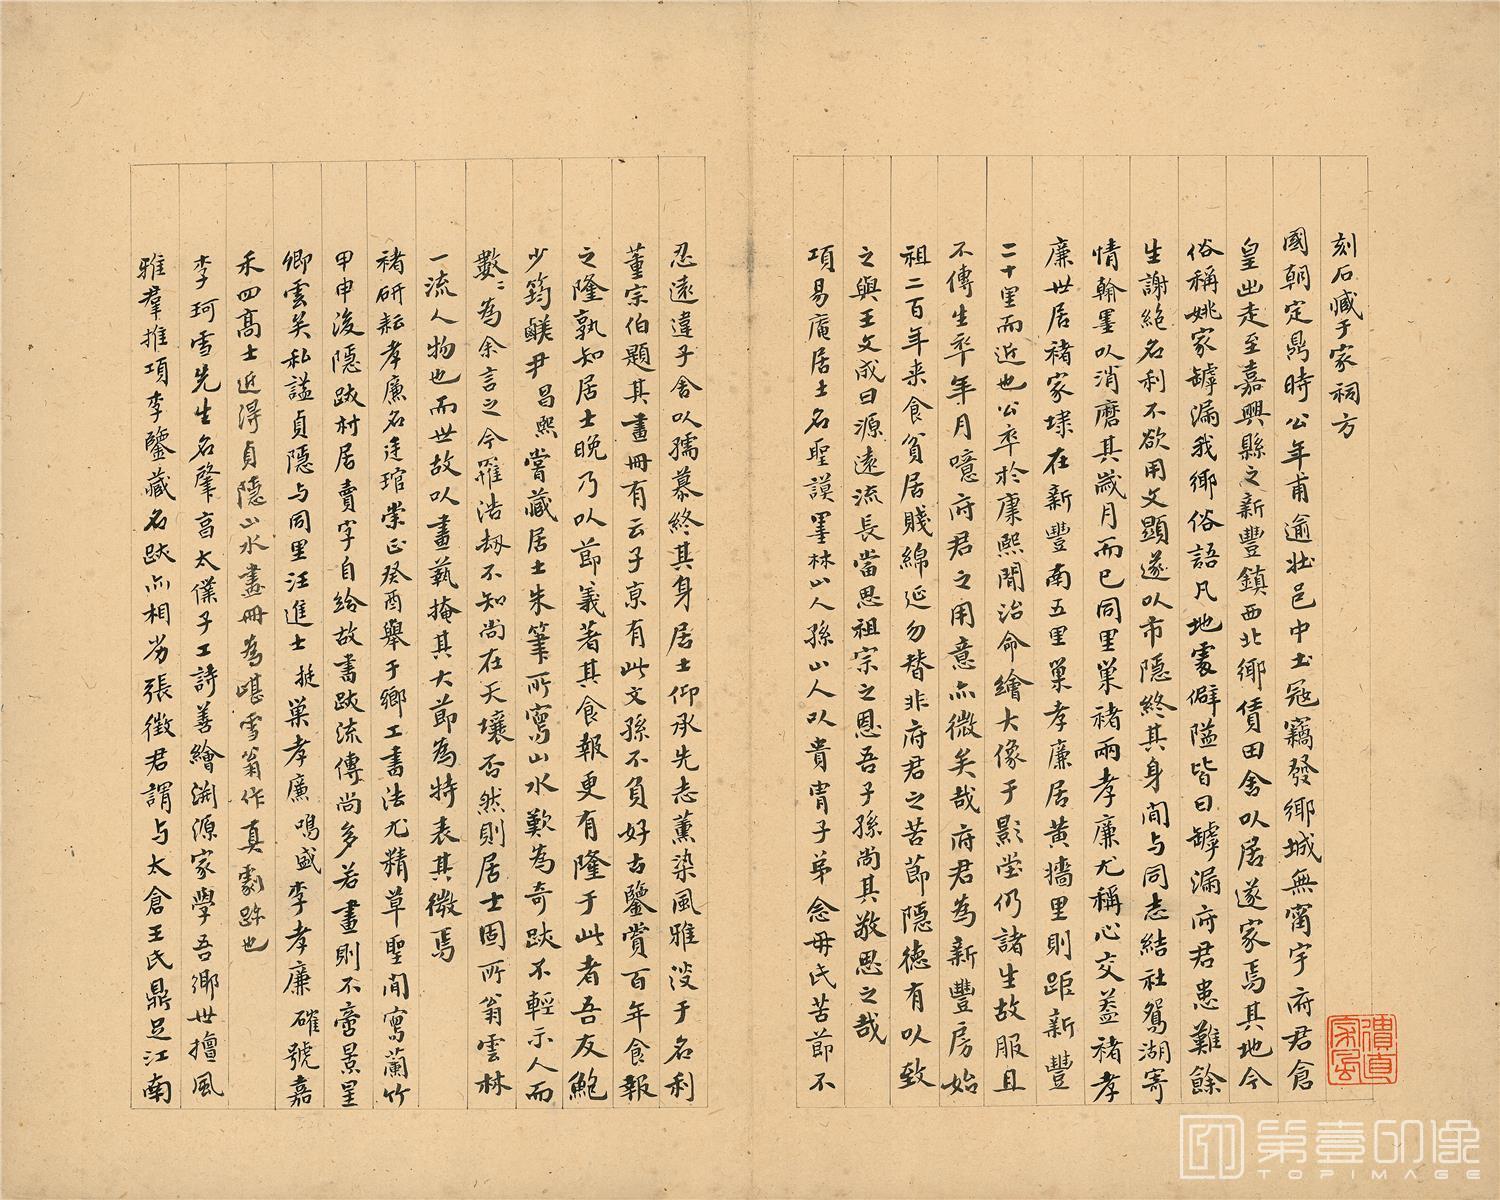 刻石臧于家祠方
國朝定鼎時公年甫逾壯邑中土寇竊發鄉城無甯宇府君倉
皇出走至嘉興縣之新豐鎮西北鄉賃田舍以居遂家焉其地今
俗稱姚家罅漏我鄉俗語凡地處僻隘皆曰罅漏府君患難餘
生謝絕名利不欲用文顯遂以市隱終其身閒与同志結社鴛湖寄
情翰墨以消磨其歲月而已同里巢褚兩孝廉尤稱心交蓋褚孝
廉世居褚家埭在新豐南五里巢孝廉居黃牆里則距新豐
二十里而近也公卒於康熙閒治命繪大像于影堂仍諸生故服且
不傳生卒年月噫府君之用意亦微矣哉府君為新豐房始
祖二百年来食貧居賤綿延勿替非府君之苦節隱德有以致
之與王文成曰源遠流長當思祖宗之恩吾子孫尚其敬思之哉
項易庵居士名聖謨墨林山人孫山人以貴胄子弟念毋氏苦節不
忍遠違子舍以孺慕終其身居士仰承先志薰染風雅淡于名利
董宗伯題其畫冊有云子京有此文孫不負好古鑒賞百年食報
之隆孰知居士晚乃以節義著其食報更有隆于此者吾友鮑
少筠鹺尹昌熙嘗藏居士朱筆所寫山水歎為奇跡不輕示人而
數〻為余言之今罹浩劫不知尚在天壤否然則居士固所翁雲林
一流人物也而世故以畫藝掩其大節為特表其微焉
褚研耘孝廉名廷琯崇正癸酉舉于鄉工書法尤精草聖閒寫蘭竹
甲申後隱跡村居賣字自給故書跡流傳尚多若畫則不啻景星
卿雲矣私謚貞隱与同里汪進士挺巢孝廉鳴盛李孝廉確號嘉
禾四高士近得貞隱山水畫冊為嵁雪翁作真劇跡也
李珂雪先生名肇亯太僕子工詩善繪淵源家學吾鄉世擅風
雅羣推項李鑒藏名跡亦相劣張徵君謂与太倉王氏鼎足江南
第壹印像
TOPIMAGE